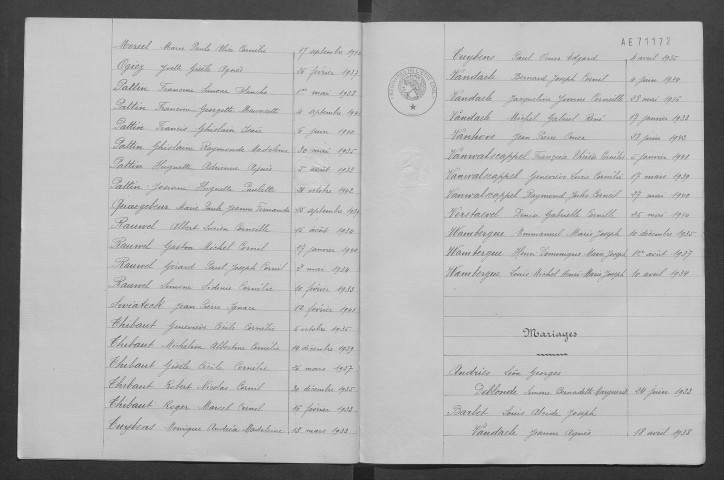 Morcel Marie Paule Alice Cornélie 27 septembre 1942
Ogiez Yvette Gisèle Agnès 26 février 1937
Pattin Francine Simone Blanche 1er mai 1933
Pattin Francine Georgette Mauricette 4 septembre
Pattin Francis Ghislain 6 juin 1940
Pattin Ghislaine Raymonde Madeleine 22 mai 1935
Pattin Huguette Adrienne Agnès 5 août 1933
Pattin Josiane Huguette Paulette 31 octobre 1942
Quaegebeur Marie Paule Jeanne Fernande 18 septembre 1939
Rauwel Albert Lucien Corneille 16 août 1934
Rauwel Gaston Michel Cornil 17 janvier 1940
Rauwel Gérard Paul Joseph Cornil 2 mai 1934
Rauwel Simone Cornélie 10 février 1933
Swiateck Jean Pierre Ignace 12 février 1941
Thibaut Geneviève Cécile Cornélie 6 octobre 1935
Thibaut Micheline Albertine Cornélie 14 décembre 1939
Thibaut Gisèle Cécile Cornélie 16 mars 1937
Thibaut Robert Nicolas Cornil 30 décembre 1935
Thibaut Roger Marcel Cornil 16 février 1933
Tuytens Monique Andréa Madeleine 18 mars 1933
AE71172
Tuytens Paul Omer Edgard 4 avril 1935
Vandaele Bernard Joseph Cornil 4 juin 1934
Vandaele Jacqueline Jeanne Corneille 23 mai 1936
Vandaele Michel Gabriel René 17 janvier 1933
Vanhove Jean Pierre 23 juin 1943
Vanwalscappel François Cornélis 6 janvier 1941
Vanwalscappel Geneviève Luce Cornélie 17 mars 1939
Vanwalscappel Raymond Jules Corneil 27 mai 1940
Verstaevel Denise Gabrielle Camille 25 mai 1940
Wambergue Emmanuel Marie Joseph 10 décembre 1935
Wambergue Henri Dominique Marie Joseph 1er août 1937
Wambergue Louis Michel Henri Marie Joseph 10 avril 1934
Mariages
Andriès Léon Georges
Deblonde Simone Bernadette Marguerite 24 juin 1933
Barbet Louis Joseph
Vandaele Jeanne Agnès 18 avril 1938